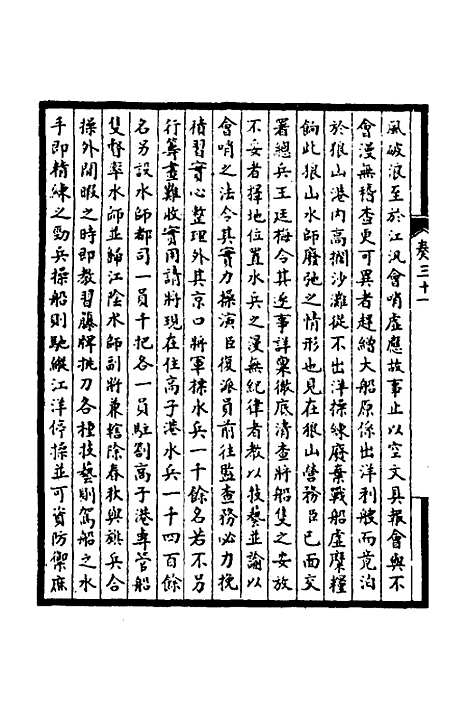 風破浪至於江汛會哨虛應故事止以空文具報會與不
會漫無稽查更可異者趕繒大船原係出洋利艘而竟泊
於狼山港内高擱沙灘從不出洋操練廢棄戰船虛糜糧
餉此狼山水師廢弛之情形也見在狼山營務臣已面交
署總兵王廷梅令其逐事詳稟徹底清查將船隻之安放
不妥者擇地位置水兵之漫無紀律者教以技藝並諭以
會哨之法令其實力操演臣復派員前往監查務必力挽
積習實心整理外其京口將軍標水兵一千餘名若不另
行籌畫難收實用請將現在住高子港水兵一千四百餘
名另設水師都司一員千把各一員駐劄高子港專管船
隻督率水師並歸江陰水師副將兼轄除春秋與旗兵合
操外閒暇之時即教習籐牌挑刀各種技藝則駕船之水
手即精練之勁兵操船則馳縱江洋停操並可資防禦庶
奏三十一